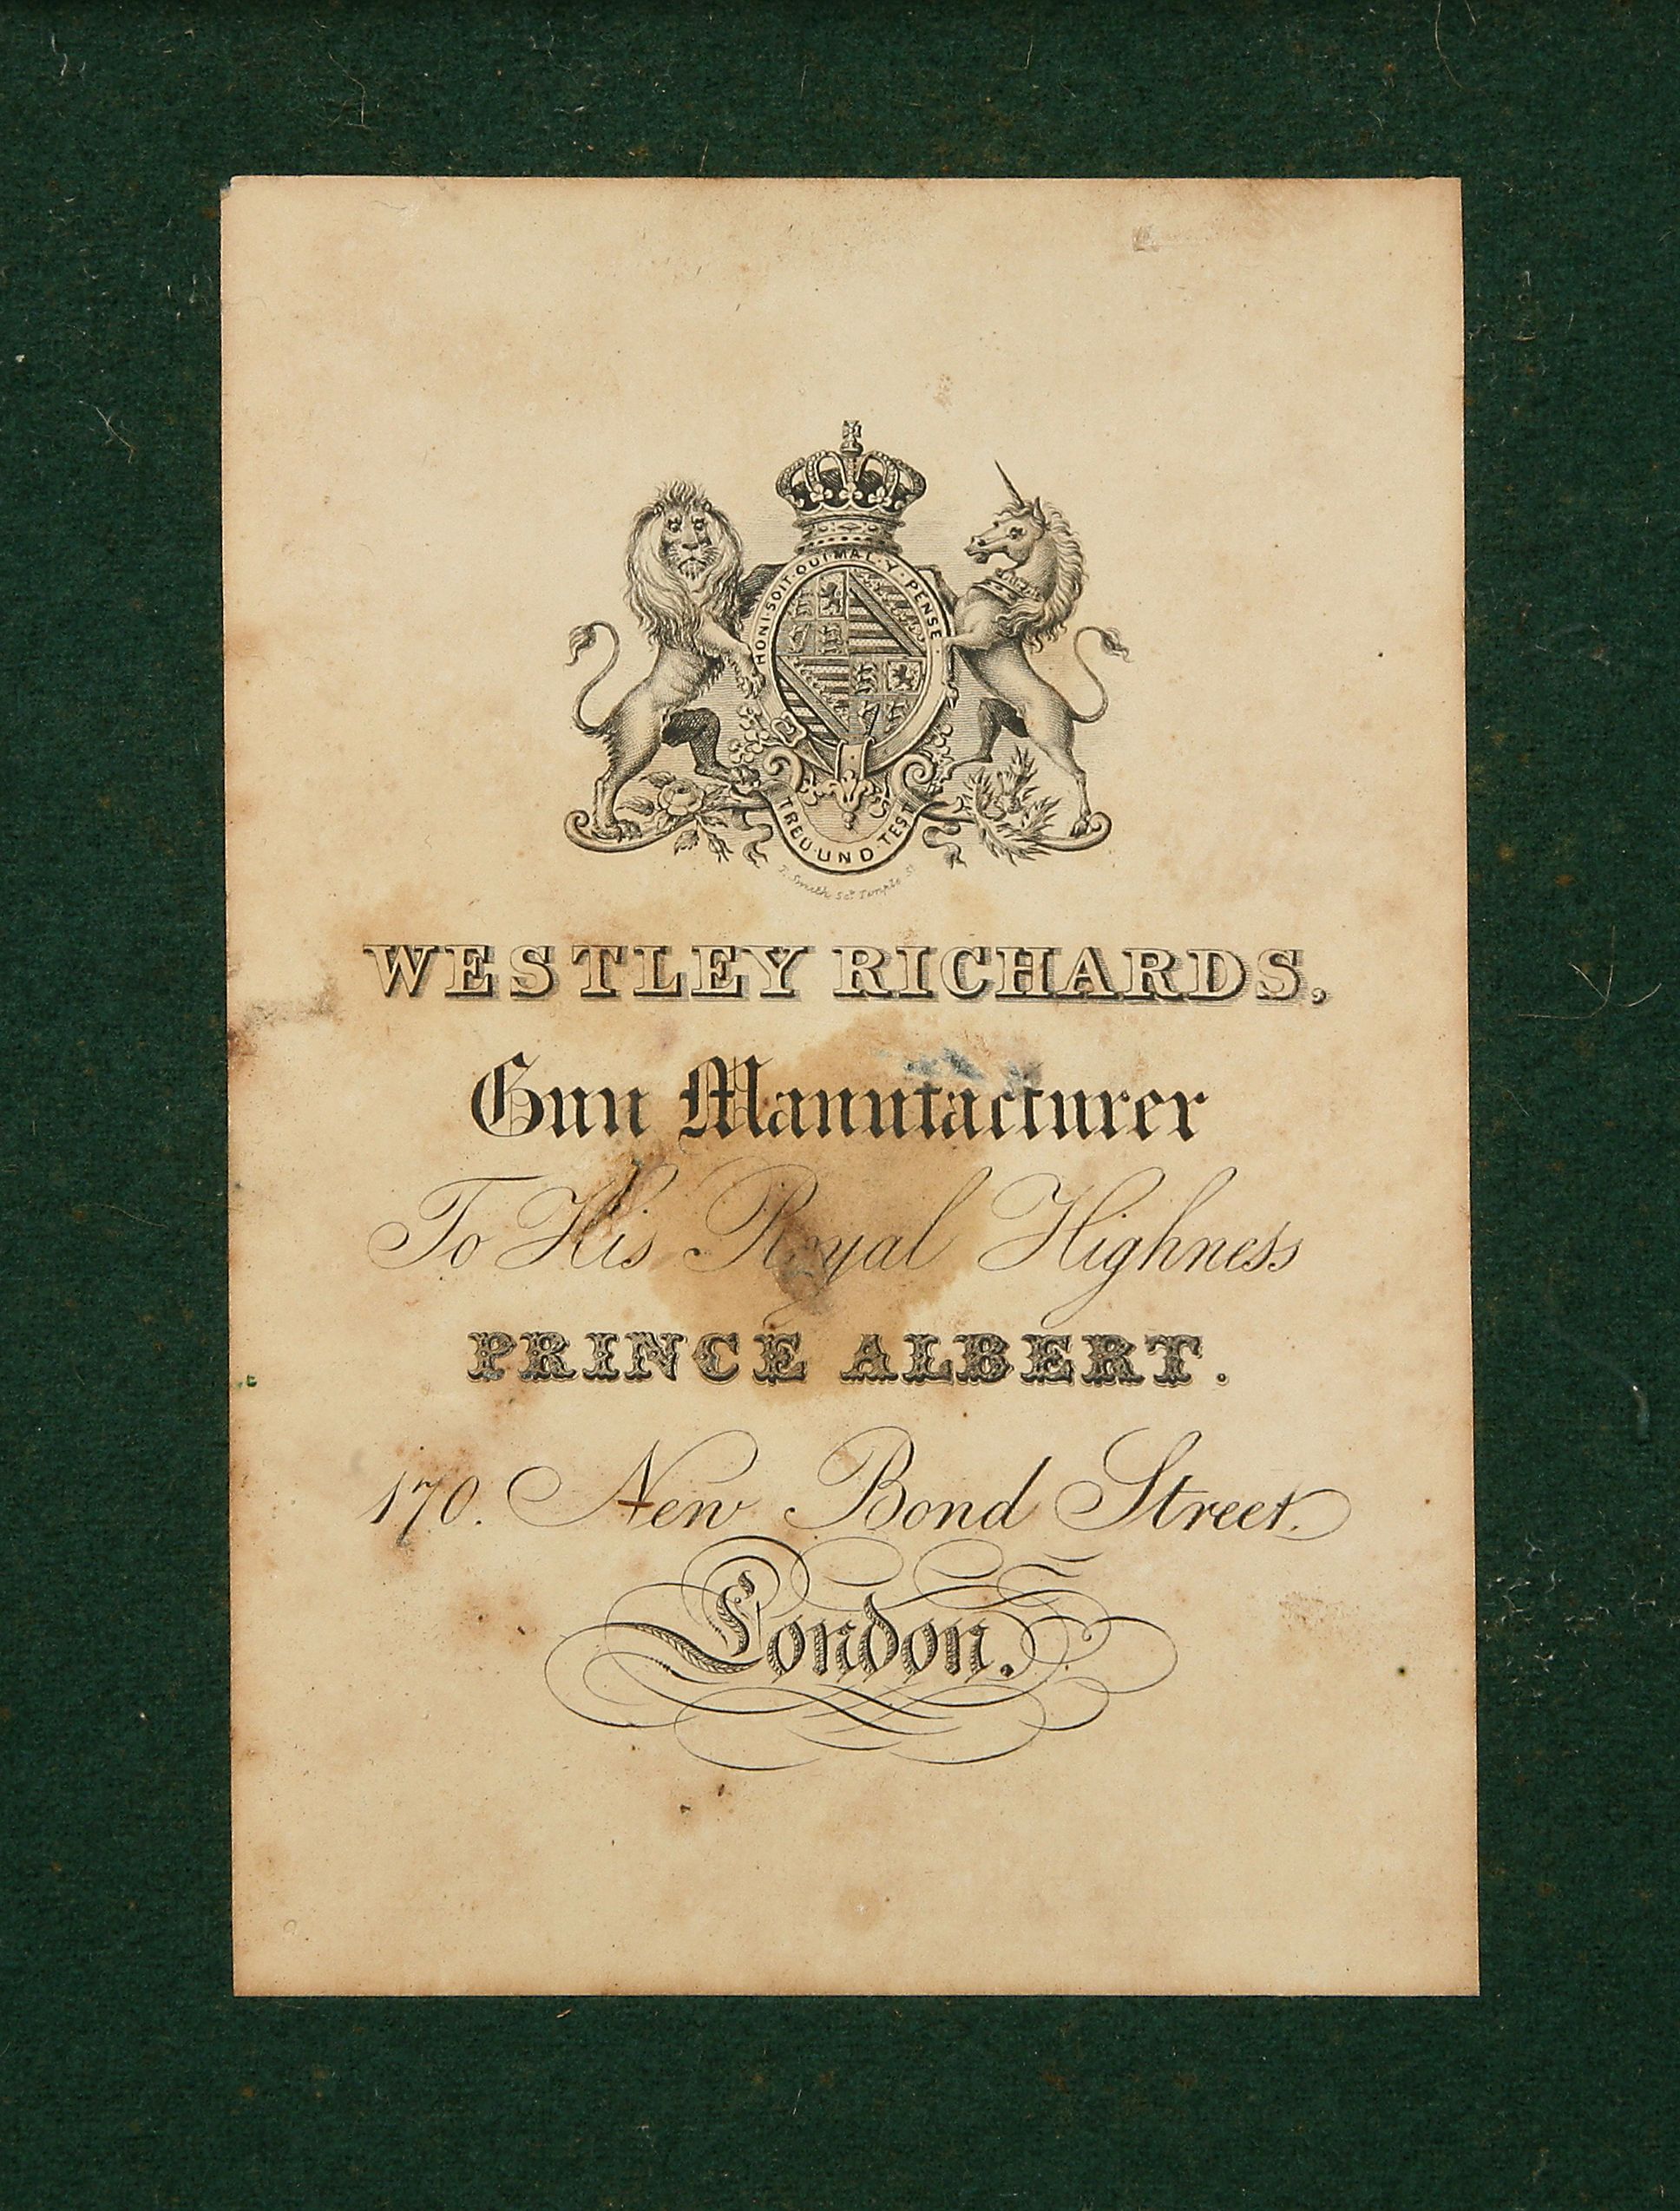 HONI·SOIT·QUI·MAL·Y·PENSE
TREU·UND·TEST
T. Smith, Sct. Temple St.
WESTLEY RICHARDS,
Gun Manufacturer
To His Royal Highness
PRINCE ALBERT.
170. New Bond Street.
London.